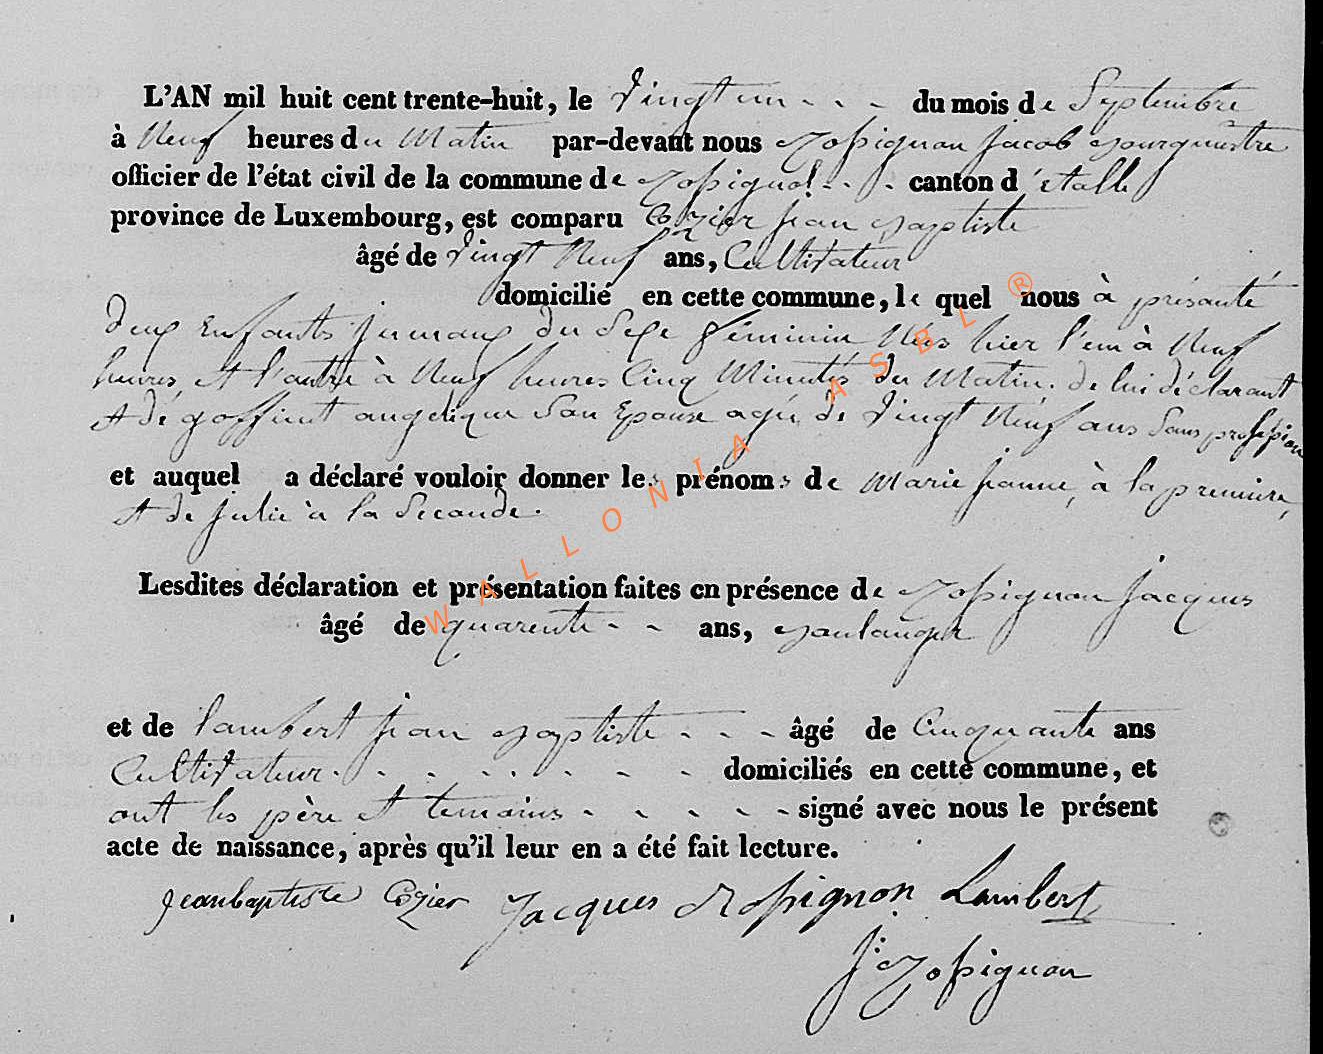 L'AN mil huit cent trente-huit, le vingt un - - - du mois de Septembre
à neuf heures du matin par-devant nous Rossignon Jacob Bourguestre
officier de l'état civil de la commune de Rossignol - - - canton d'etalle
province de Luxembourg, est comparu Cozier jean Baptiste
âgé de vingt neuf ans, Cultivateur
domicilié en cette commune, le quel nous à présanté
deux Enfants jumaux du Sexe féminin Nées hier l'em à Neuf
heures et l'autre à Neuf heures Cinq Minutés du Matin. de lui déclarant
et dé goffinet angelique Son Epouse agée de vingt Neuf ans Sans profession
et auquel a déclaré vouloir donner les prénoms de Marie jeanne, à la premiere,
et de julie à la Seconde.
Lesdites déclaration et présentation faites en présence de Rossignon jacques
âgé de quarente - - ans, Boulanger
et de lambert jean Baptiste - - - âgé de Cinquante ans
Cultivateur - - - - - - - domiciliés en cette commune, et
ont les père et temoins - - - - - signé avec nous le présent
acte de naissance, après qu'il leur en a été fait lecture.
Jeanbaptiste Cozier Jacques Rossignon Lambert
J: Rossignon
WALLONIA ASBL ®